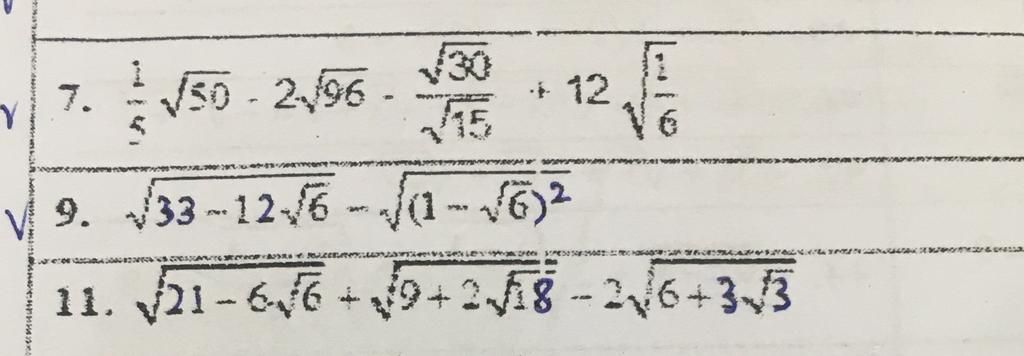 7. \frac{1}{5}\sqrt{50} - 2\sqrt{96} - \frac{\sqrt{30}}{\sqrt{15}} + 12\sqrt{\frac{1}{6}}
9. \sqrt{33-12\sqrt{6}} - \sqrt{(1-\sqrt{6})^2}
11. \sqrt{21-6\sqrt{6}} + \sqrt{9+2\sqrt{18}} - 2\sqrt{6+3\sqrt{3}}